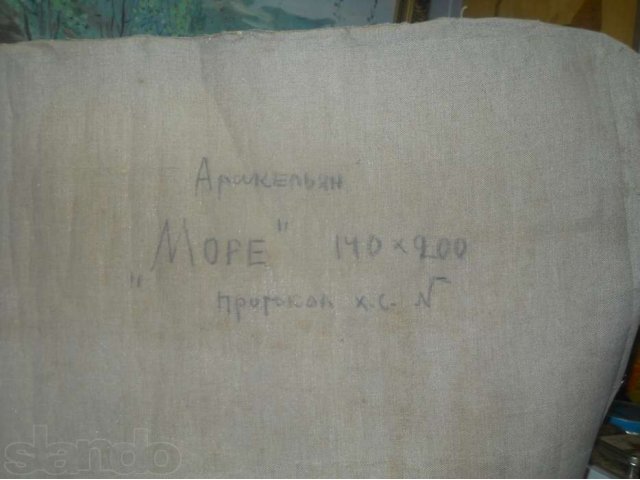 Аракельян
"Море" 140 х 200
протокол х.с. №
slando